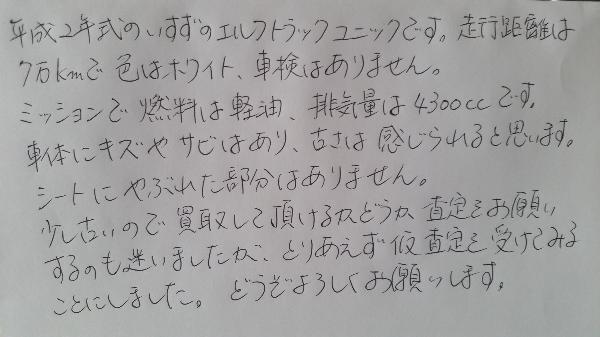 平成2年式のいすずのエルフトラックユニックです。走行距離は
7万kmで色はホワイト、車検はありません。
ミッションで燃料は軽油、排気量は4300ccです。
車体にキズやサビはあり、古さは感じられると思います。
シートにやぶれた部分はありません。
少し古いので買取して頂けるか、どうか、査定をお願い
するのも迷いましたが、とりあえず仮査定を受けてみる
ことにしました。どうぞよろしくお願いします。